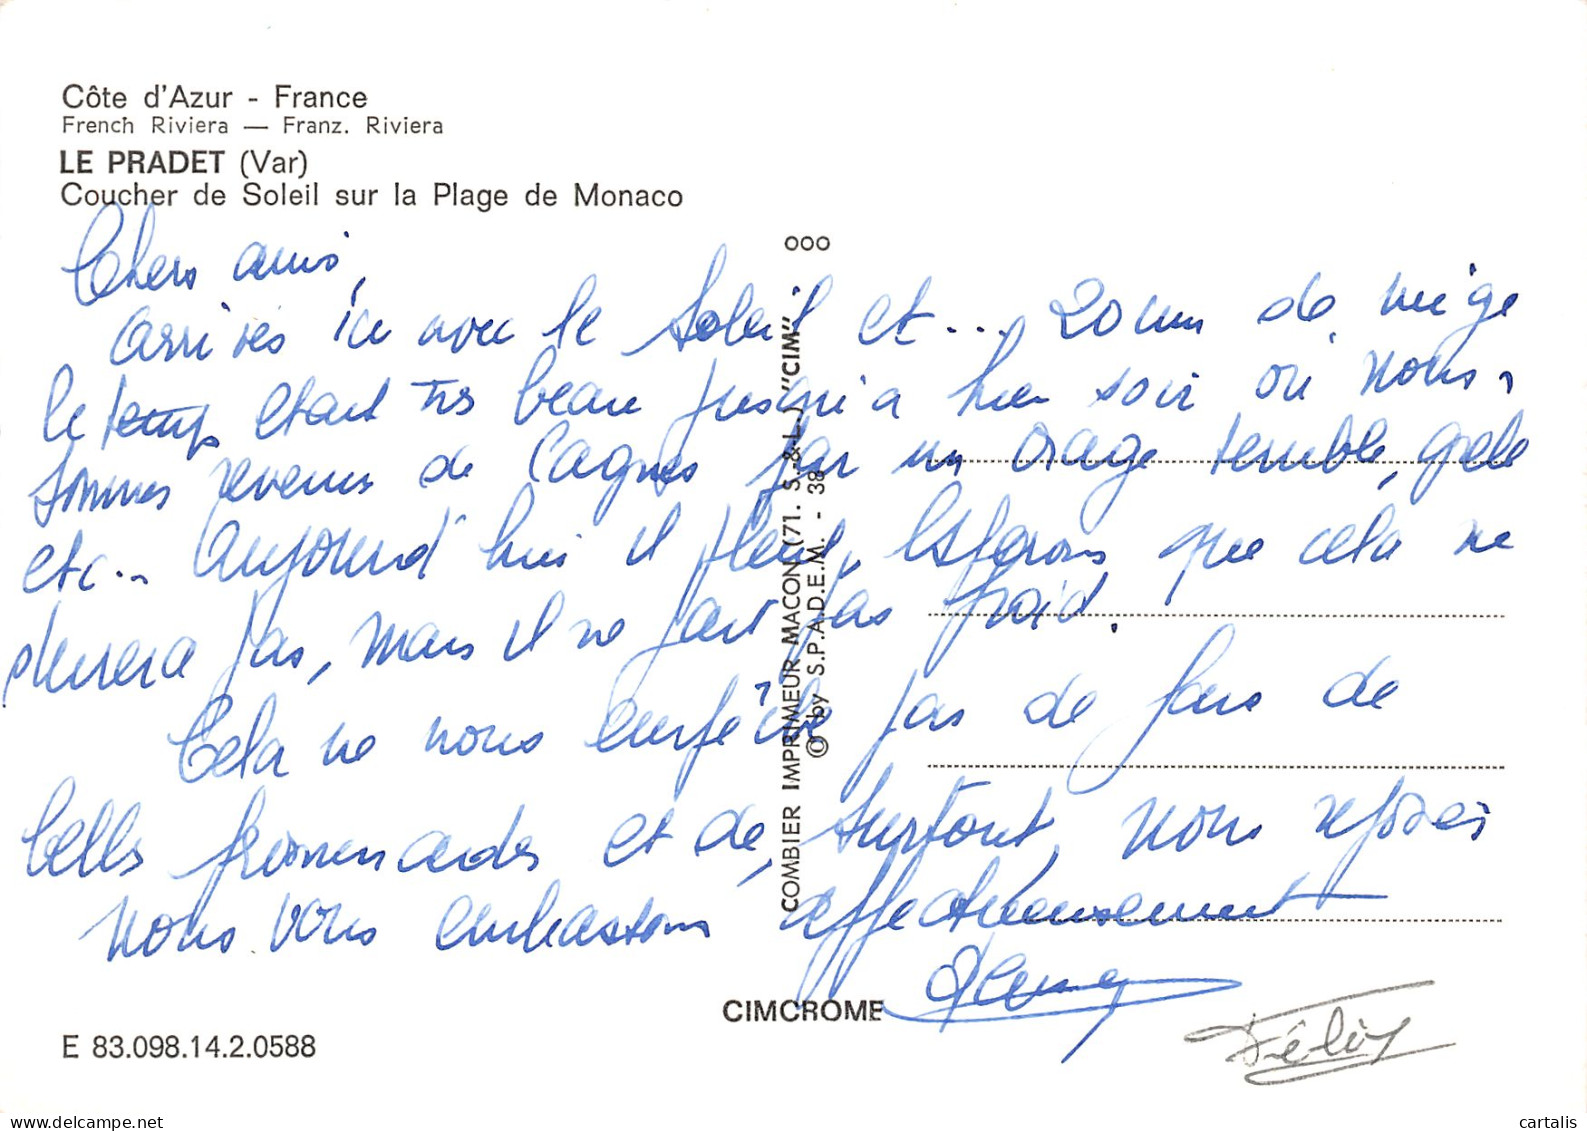 Côte d'Azur - France
French Riviera — Franz. Riviera
LE PRADET (Var)
Coucher de Soleil sur la Plage de Monaco
ooo
Chers amis,
Arrivés ici avec le soleil et... 20 cm de neige
le temps etait très beau jusqu'a hier soir où nous
sommes revenus de Cagnes par un orage terrible, grêle
etc... Aujourd'hui il pleut, espérons que cela ne
durera pas, mais il ne fait pas froid.
Cela ne nous empêche pas de faire de
belles promenades et de, surtout, nous reposer
Nous vous embrassons affectueusement
Félix
COMBIER IMPRIMEUR MACON (71. S.-&-L.) "CIM"
© by S.P.A.D.E.M. - 38
CIMCROME
E 83.098.14.2.0588
cartalis